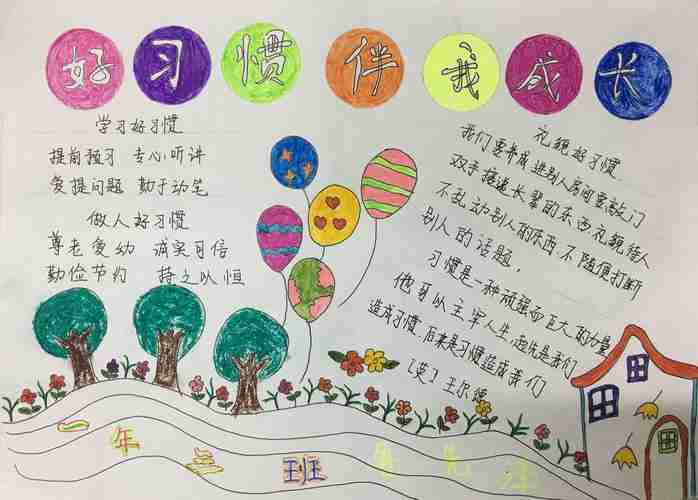 好习惯伴我成长
学习好习惯
提前预习 专心听讲
爱提问题 勤于动笔
做人好习惯
尊老爱幼 诚实可信
勤俭节约 持之以恒
礼貌好习惯
我们要养成进别人房间要敲门
双手接递长辈的东西礼貌待人
不乱动别人的东西,不随便打断
别人的话题。
习惯是一种顽强而巨大的力量
他可以主宰人生,起先是我们
造成习惯,后来是习惯造成我们
[英]王尔德
年 班